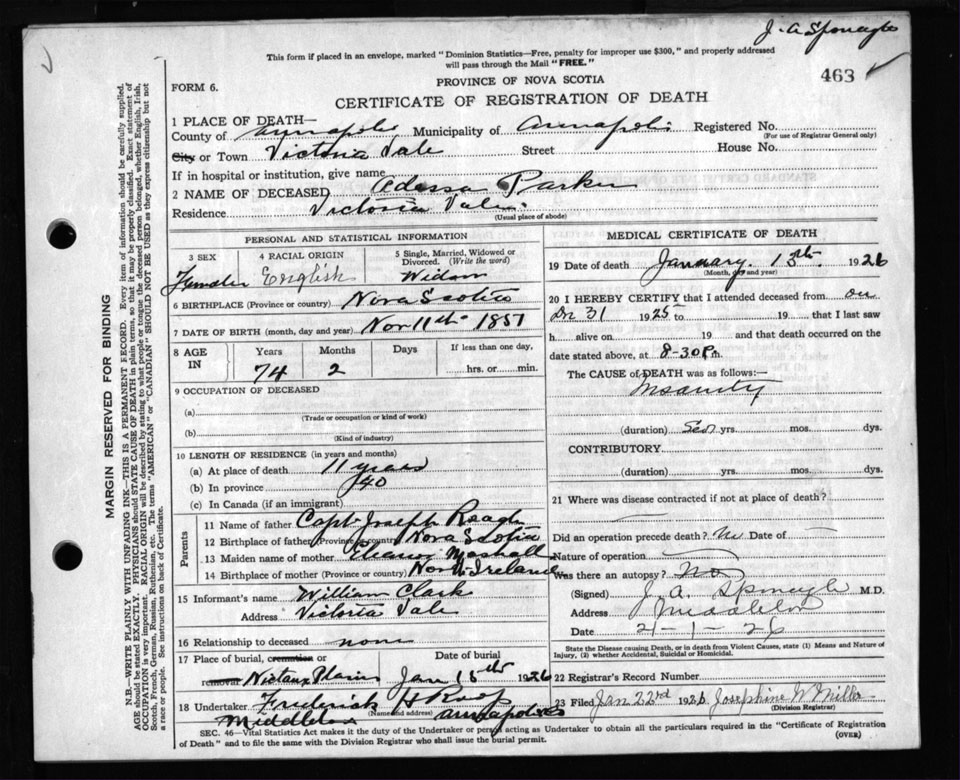 J. A Sponagle
This form if placed in an envelope, marked "Dominion Statistics—Free, penalty for improper use $300," and properly addressed
will pass through the Mail "FREE."
463
PROVINCE OF NOVA SCOTIA
FORM 6.
CERTIFICATE OF REGISTRATION OF DEATH
1 PLACE OF DEATH—
County of Annapolis, Municipality of Annapolis Registered No.
(For use of Registrar General only)
City or Town Victoria Vale Street House No.
If in hospital or institution, give name
2 NAME OF DECEASED Adessa Parker
Residence Victoria Vale
(Usual place of abode)
PERSONAL AND STATISTICAL INFORMATION
3 SEX 4 RACIAL ORIGIN 5 Single, Married, Widowed or
Divorced. (Write the word)
Female English Widow
6 BIRTHPLACE (Province or country) Nova Scotia
7 DATE OF BIRTH (month, day and year) Nov 11th 1851
8 AGE IN Years Months Days If less than one day,
74 2 hrs. or min.
9 OCCUPATION OF DECEASED
(a)
(Trade or occupation or kind of work)
(b)
(Kind of industry)
10 LENGTH OF RESIDENCE (in years and months)
(a) At place of death 11 years
(b) In province 40
(c) In Canada (if an immigrant)
Parents
11 Name of father Capt Joseph Reagh
12 Birthplace of father (Province or country) Nova Scotia
13 Maiden name of mother Eleanor Mashall
14 Birthplace of mother (Province or country) North Ireland
15 Informant's name William Clark
Address Victoria Vale
16 Relationship to deceased none
17 Place of burial, cremation or Date of burial
removal Nictaux Plain Jan 15th 1926
18 Undertaker Frederick H Roop
(Name and address)
Middleton Annapolis
MEDICAL CERTIFICATE OF DEATH
19 Date of death January. 13th. 1926
(Month, day and year)
20 I HEREBY CERTIFY that I attended deceased from on
Dec 31 1925 to 19 that I last saw
h alive on 19 and that death occurred on the
date stated above, at 8-30 Pm
The CAUSE of DEATH was as follows:—
Insanity
(duration) yrs. mos. dys.
CONTRIBUTORY
(duration) yrs. mos. dys.
21 Where was disease contracted if not at place of death?
Did an operation precede death? No Date of
Nature of operation
Was there an autopsy? No
(Signed) J. A. Sponagle M.D.
Address Middleton
Date 21-1-26
State the Disease causing Death, or in death from Violent Causes, state (1) Means and Nature of
Injury, (2) whether Accidental, Suicidal or Homicidal.
22 Registrar's Record Number
23 Filed Jan 22nd 1926 Josephine W Miller
(Division Registrar)
SEC. 46—Vital Statistics Act makes it the duty of the Undertaker or person acting as Undertaker to obtain all the particulars required in the "Certificate of Registration
of Death" and to file the same with the Division Registrar who shall issue the burial permit. (OVER)
MARGIN RESERVED FOR BINDING
N.B.—WRITE PLAINLY WITH UNFADING INK—THIS IS A PERMANENT RECORD. Every item of information should be carefully supplied.
AGE should be stated EXACTLY. PHYSICIANS should STATE CAUSE OF DEATH in plain terms, so that it may be properly classified. Exact statement of
OCCUPATION is very important. RACIAL ORIGIN will be described by stating to what people or tongue the deceased person belonged, whether English, Irish,
Scotch, French, German, Russian, Ruthenian, etc. The terms "AMERICAN" or "CANADIAN" SHOULD NOT BE USED as they express citizenship but not
a race or people. See instructions on back of Certificate.